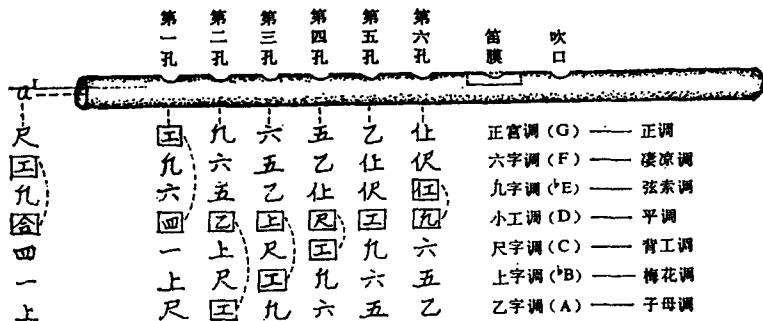 第一孔 第二孔 第三孔 第四孔 第五孔 第六孔 笛膜 吹口
a¹
尺 工 九 六 五 乙 仩 正宫调（G）—— 正调
工 九 六 五 乙 仩 伬 六字调（F）—— 凄凉调
九 六 五 乙 仩 伬 仜 九字调（♭E）—— 弦索调
合 四 乙 上 尺 工 九 小工调（D）—— 平调
四 一 上 尺 工 九 六 尺字调（C）—— 背工调
一 上 尺 工 九 六 五 上字调（♭B）—— 梅花调
上 尺 工 九 六 五 乙 乙字调（A）—— 子母调